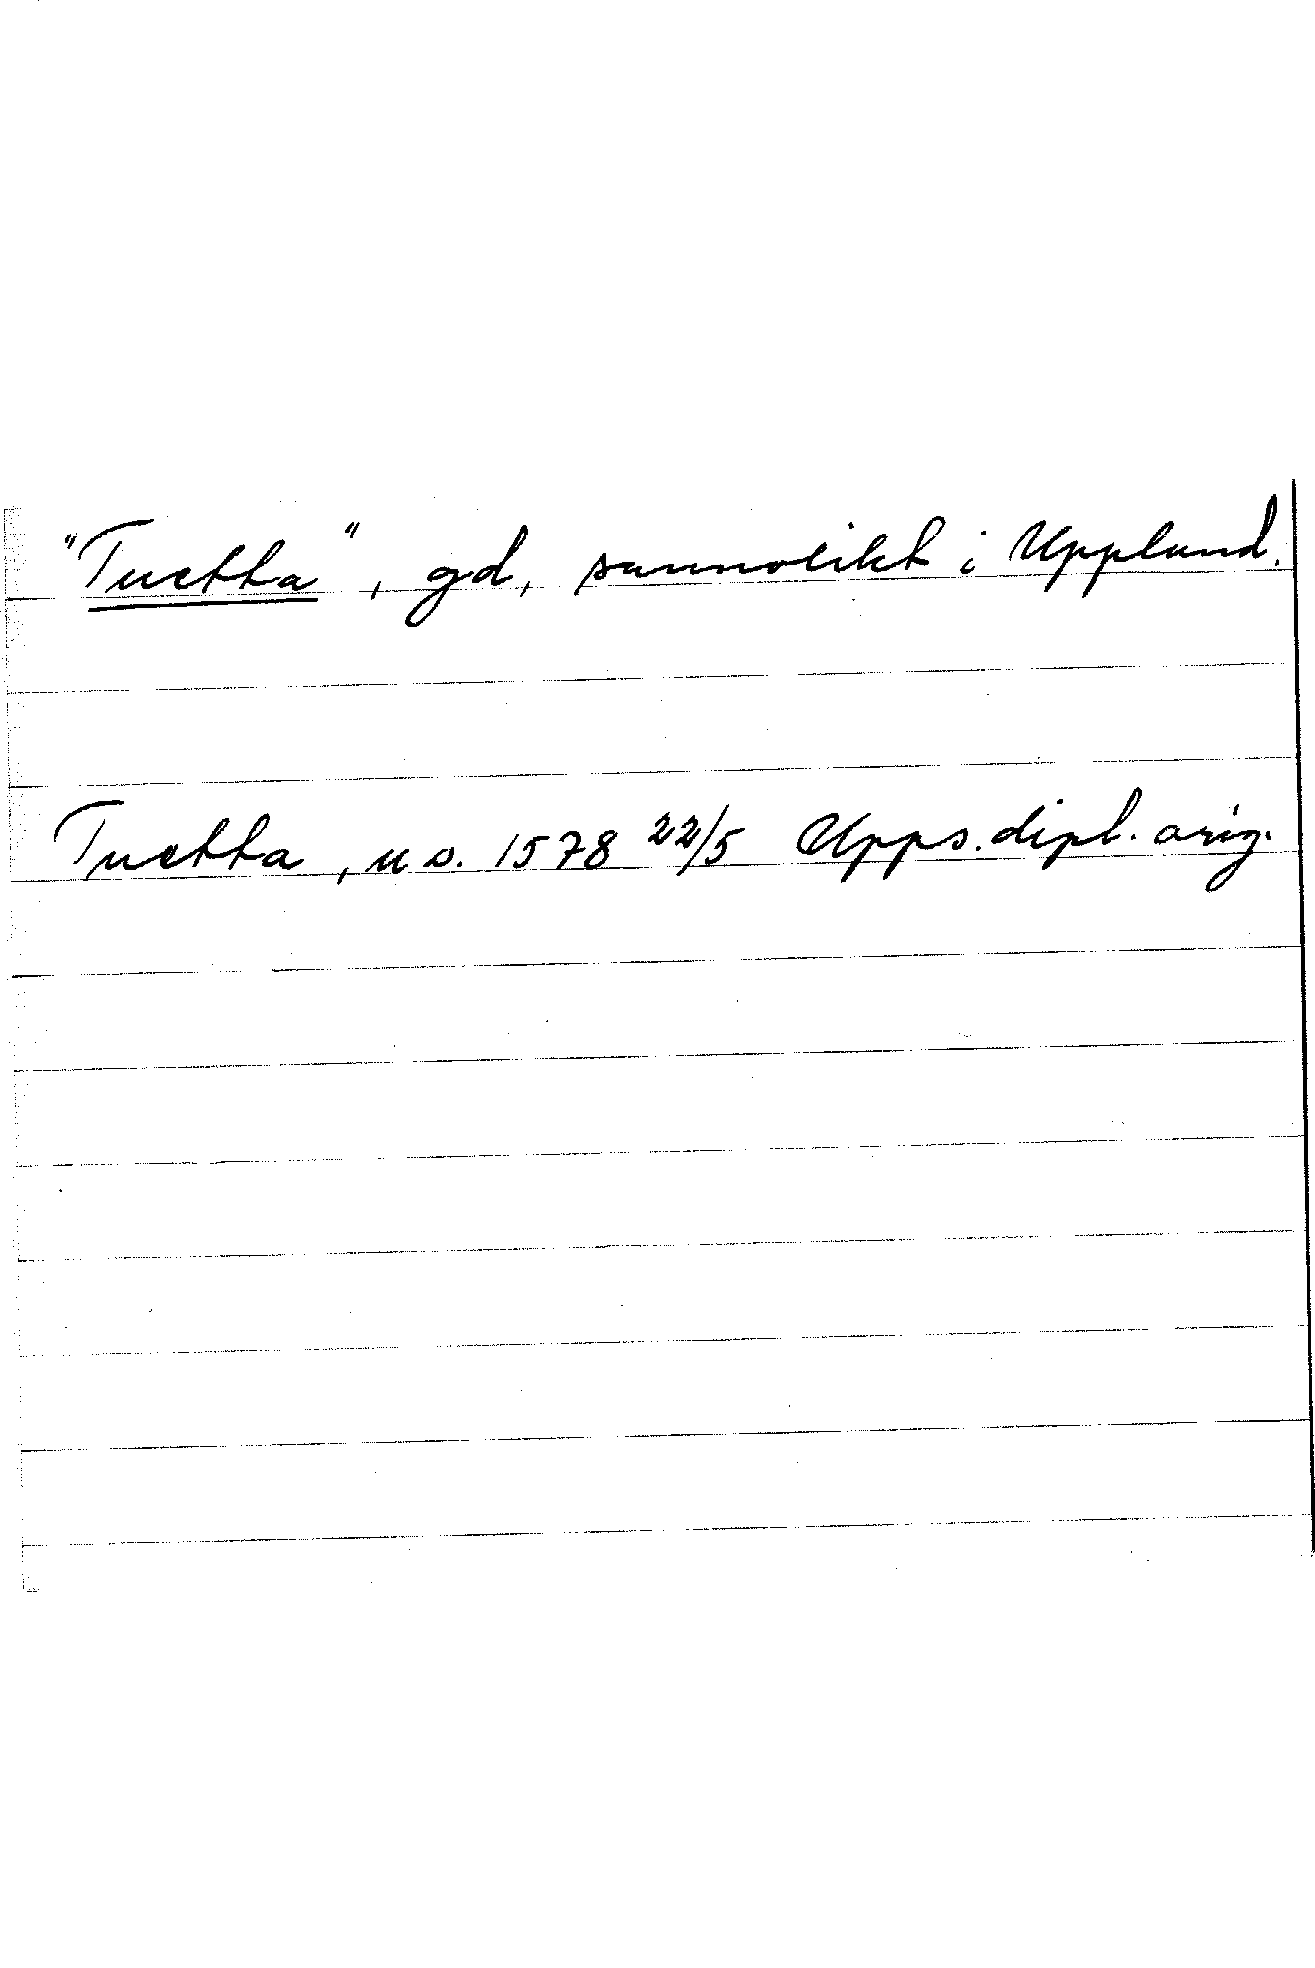 "Tuetta", gd, sannolikt i Uppland.
Tuetta, u s. 1578 22/5 Upps. dipl. orig.